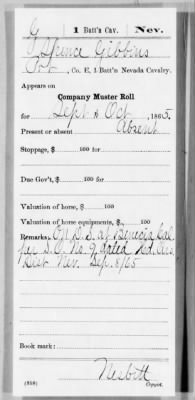 G | 1 Batt'n Cav. | Nev.
Spence Gibbins
Pvt, Co. E, 1 Batt'n Nevada Cavalry.
Appears on
Company Muster Roll
for Sept & Oct, 1865.
Present or absent Absent
Stoppage, $ 100 for
Due Gov't, $ 100 for
Valuation of horse, $ 100
Valuation of horse equipments, $ 100
Remarks: On D.S. at Benicia Cal
per S.O. No. 9 dated Hd. Qrs
Dist Nev. Sep. 8/65
Book mark:
Nesbitt
(358) Copyist.